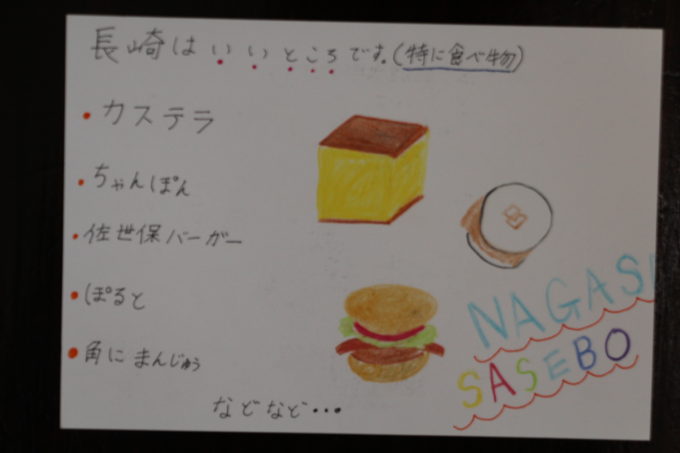 長崎はいいところです。(特に食べ物)
・カステラ
・ちゃんぽん
・佐世保バーガー
・ぽると
・角にまんじゅう
などなど・・・
NAGAS
SASEBO